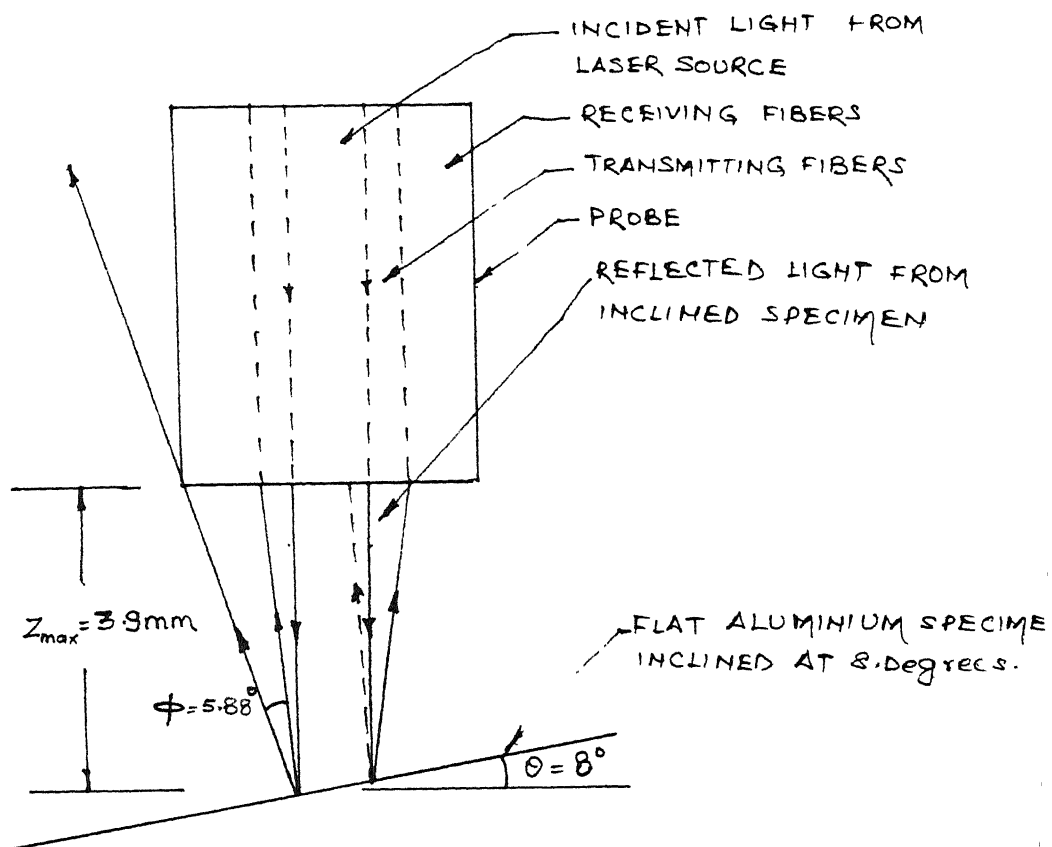 INCIDENT LIGHT FROM
LASER SOURCE
RECEIVING FIBERS
TRANSMITTING FIBERS
PROBE
REFLECTED LIGHT FROM
INCLINED SPECIMEN
Zmax = 3.9mm
FLAT ALUMINIUM SPECIME
INCLINED AT 8.Degrees.
ϕ = 5.88°
θ = 8°